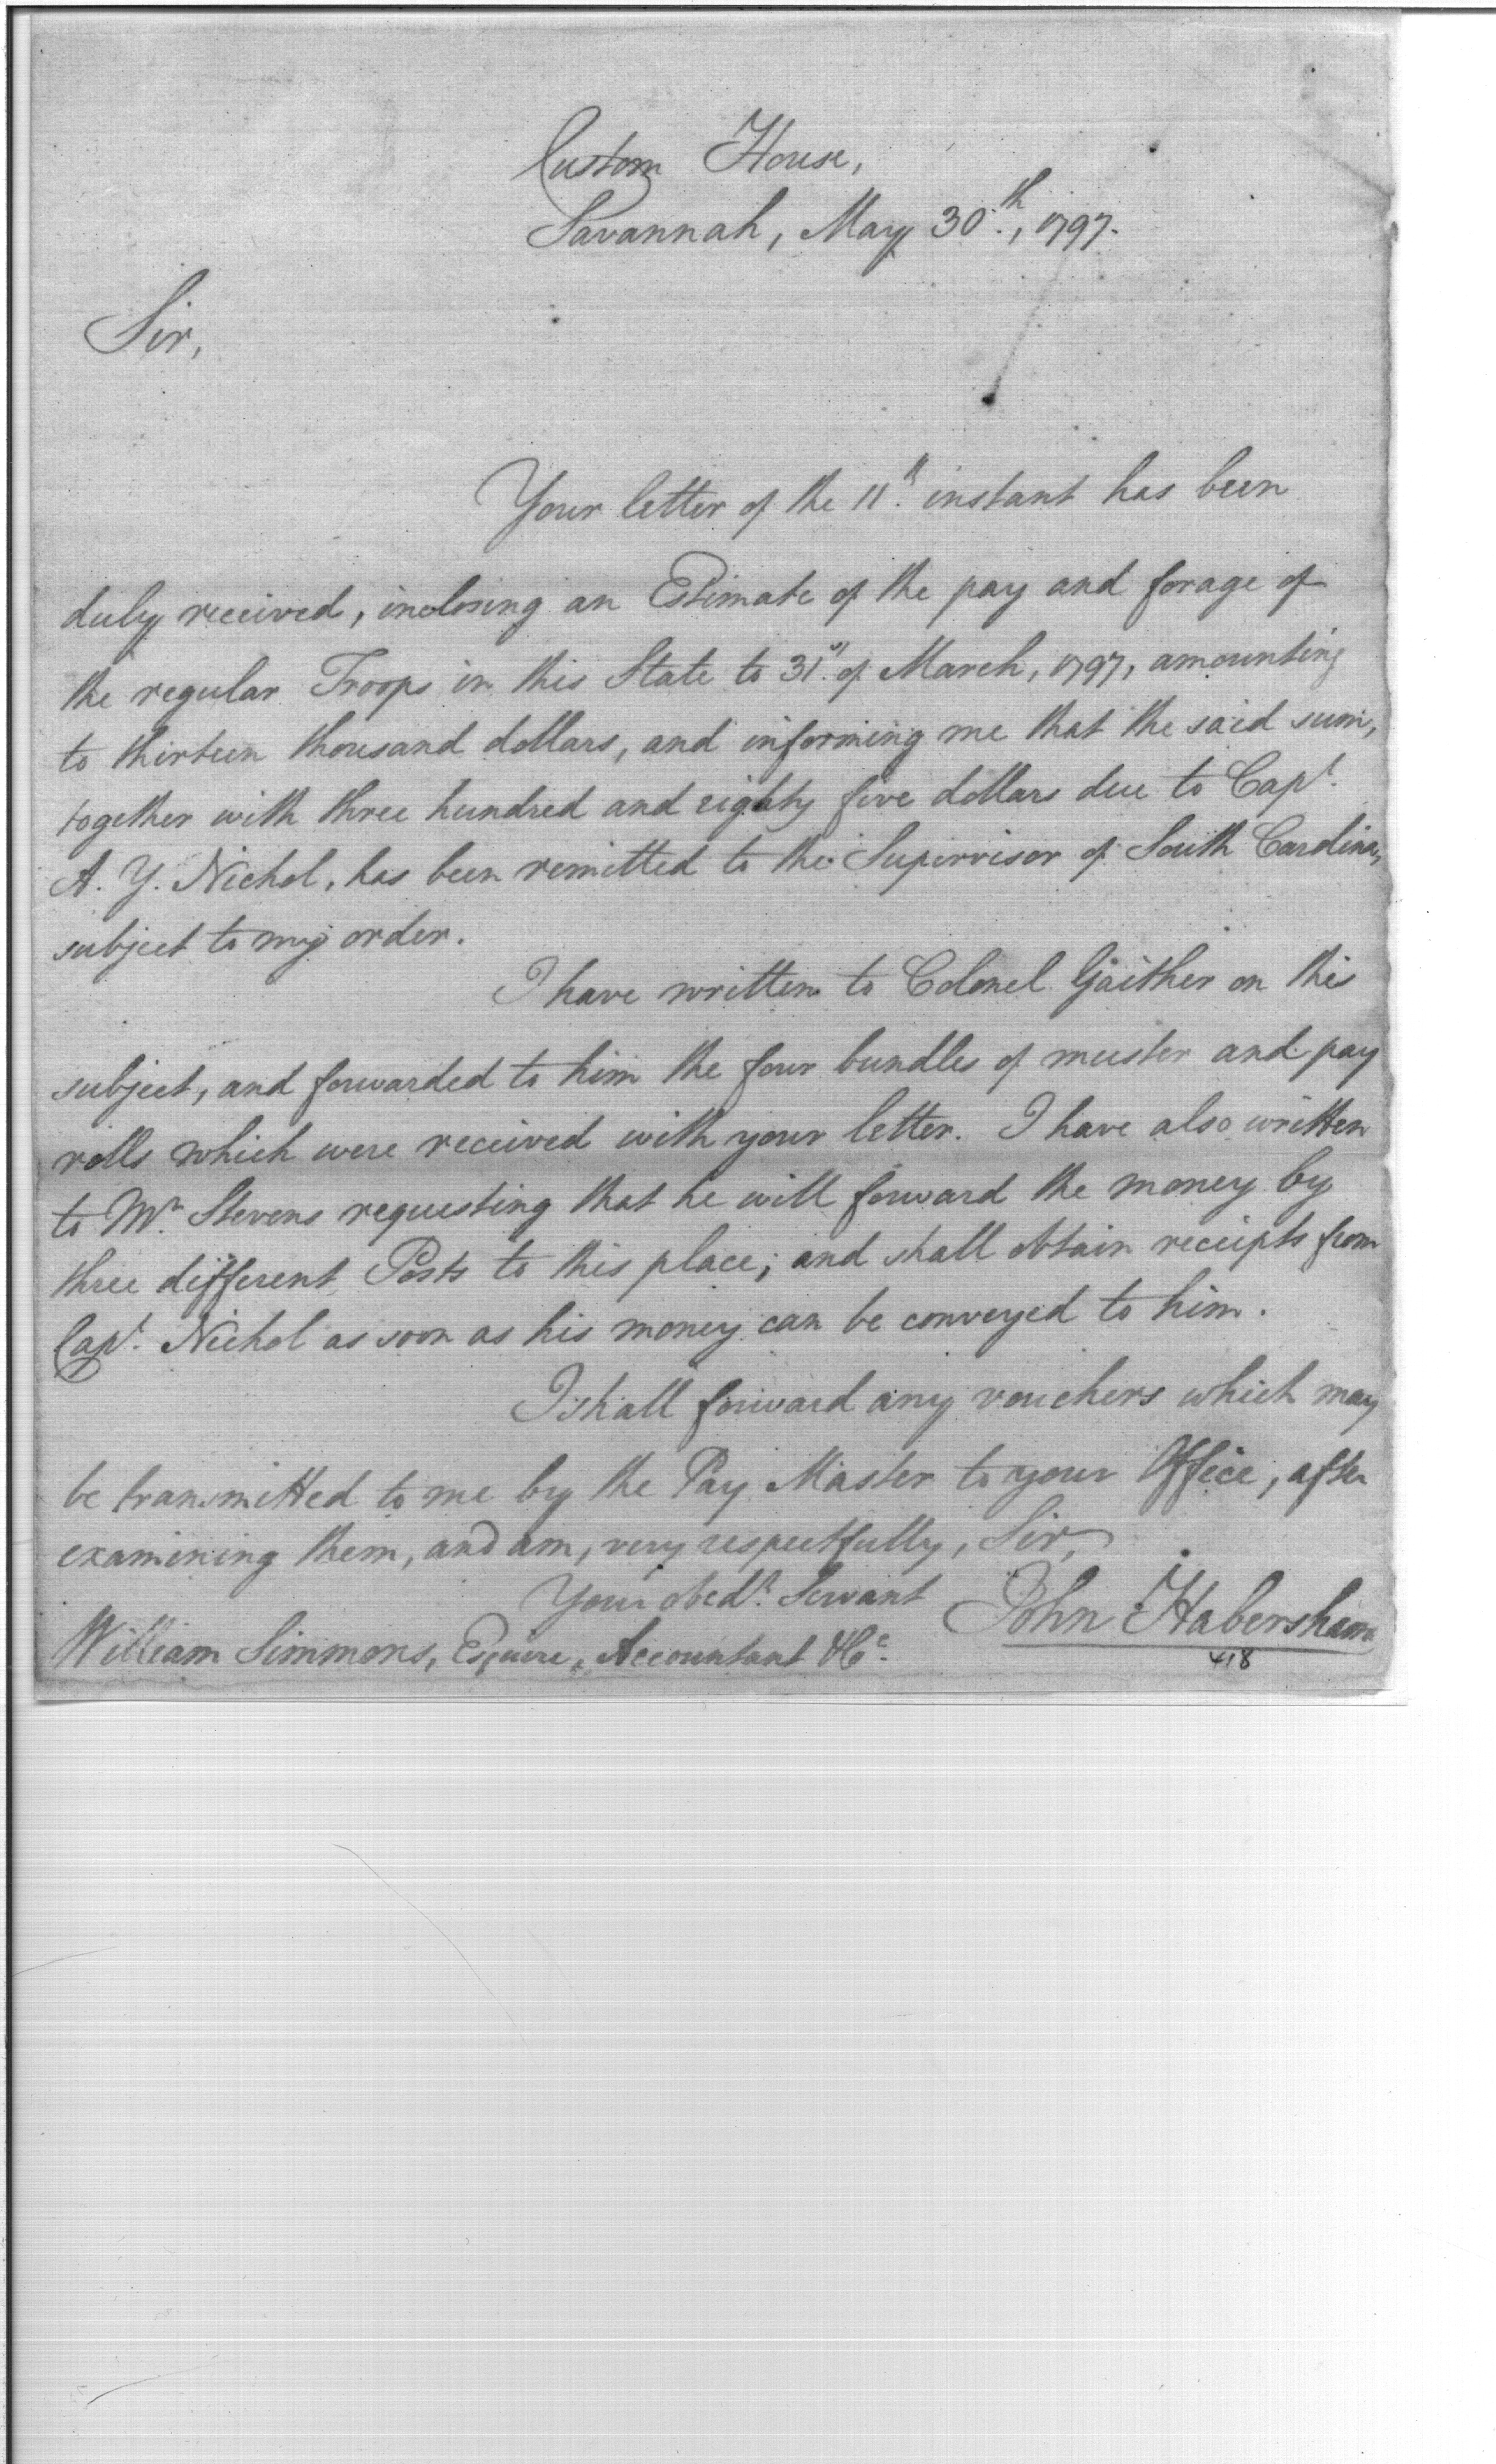 Custom House,
Savannah, May 30th., 1797.
Sir,
Your letter of the 11th. instant has been
duly received, inclosing an Estimate of the pay and forage of
the regular Troops in this State to 31st. of March, 1797, amounting
to thirteen thousand dollars, and informing me that the said sum,
together with three hundred and eighty five dollars due to Capt.
A. Y. Nichol, has been remitted to the Supervisor of South Carolina,
subject to my order.
I have written to Colonel Gaither on this
subject, and forwarded to him the four bundles of muster and pay
rolls which were received with your letter. I have also written
to Mr. Stevens requesting that he will forward the money by
three different Posts to this place; and shall obtain receipts from
Capt. Nichol as soon as his money can be conveyed to him.
I shall forward any vouchers which may
be transmitted to me by the Pay Master to your Office, after
examining them, and am, very respectfully, Sir,
Your obedt. Servant
John Habersham
William Simmons, Esquire, Accountant &c.
418